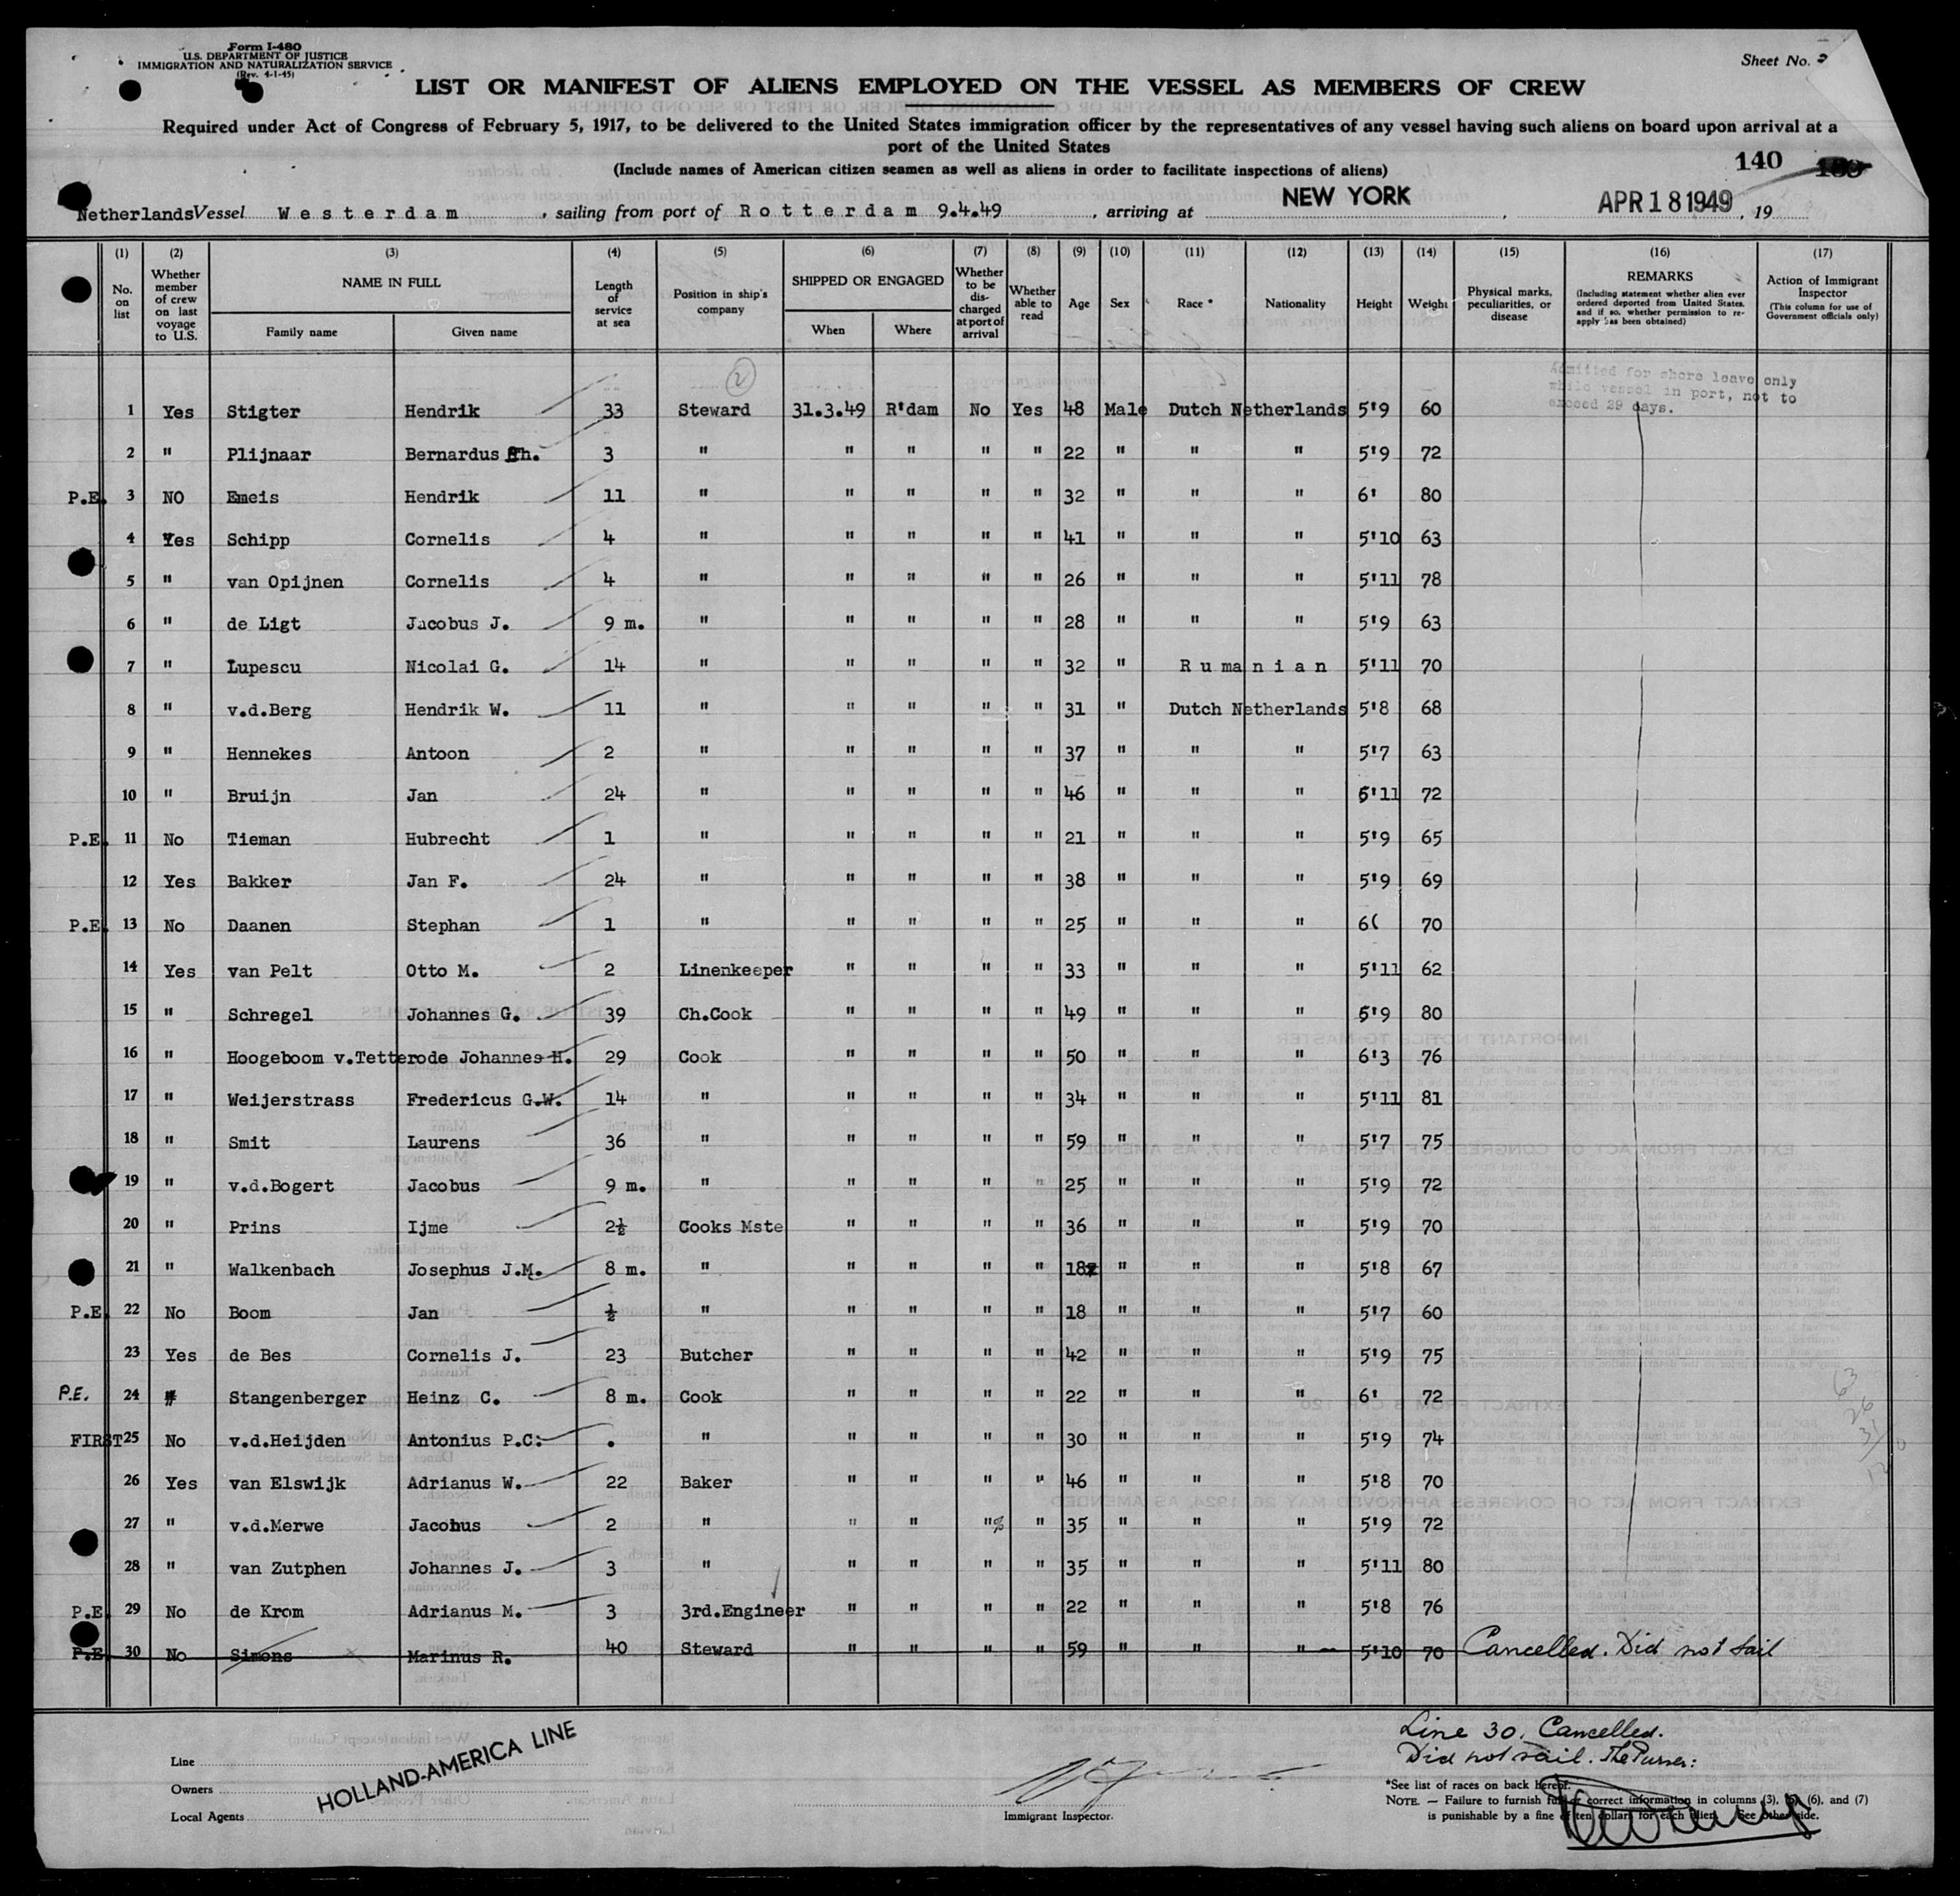 Form I-480
U.S. DEPARTMENT OF JUSTICE
IMMIGRATION AND NATURALIZATION SERVICE
(Rev. 4-1-45)
Sheet No.
LIST OR MANIFEST OF ALIENS EMPLOYED ON THE VESSEL AS MEMBERS OF CREW
Required under Act of Congress of February 5, 1917, to be delivered to the United States immigration officer by the representatives of any vessel having such aliens on board upon arrival at a
port of the United States
(Include names of American citizen seamen as well as aliens in order to facilitate inspections of aliens)
140
Netherlands Vessel Westerdam, sailing from port of Rotterdam 9.4.49, arriving at NEW YORK, APR 18 1949, 19
(1) (2) (3) (4) (5) (6) (7) (8) (9) (10) (11) (12) (13) (14) (15) (16) (17)
No. on list | Whether member of crew on last voyage to U.S. | NAME IN FULL Family name Given name | Length of service at sea | Position in ship's company | SHIPPED OR ENGAGED When Where | Whether to be discharged at port of arrival | Whether able to read | Age | Sex | Race * | Nationality | Height | Weight | Physical marks, peculiarities, or disease | REMARKS (Including statement whether alien ever ordered deported from United States, and if so, whether permission to re-apply has been obtained) | Action of Immigrant Inspector (This column for use of Government officials only)
2
Admitted for shore leave only
while vessel in port, not to
exceed 29 days.
1 Yes Stigter Hendrik 33 Steward 31.3.49 R'dam No Yes 48 Male Dutch Netherlands 5'9 60
2 " Plijnaar Bernardus Th. 3 " " " " " 22 " " " 5'9 72
P.E. 3 NO Emeis Hendrik 11 " " " " " 32 " " " 6' 80
4 Yes Schipp Cornelis 4 " " " " " 41 " " " 5'10 63
5 " van Opijnen Cornelis 4 " " " " " 26 " " " 5'11 78
6 " de Ligt Jacobus J. 9 m. " " " " " 28 " " " 5'9 63
7 " Lupescu Nicolai G. 14 " " " " " 32 " Rumanian 5'11 70
8 " v.d.Berg Hendrik W. 11 " " " " " 31 " Dutch Netherlands 5'8 68
9 " Hennekes Antoon 2 " " " " " 37 " " " 5'7 63
10 " Bruijn Jan 24 " " " " " 46 " " " 5'11 72
P.E. 11 No Tieman Hubrecht 1 " " " " " 21 " " " 5'9 65
12 Yes Bakker Jan F. 24 " " " " " 38 " " " 5'9 69
P.E. 13 No Daanen Stephan 1 " " " " " 25 " " " 6( 70
14 Yes van Pelt Otto M. 2 Linenkeeper " " " " 33 " " " 5'11 62
15 " Schregel Johannes G. 39 Ch.Cook " " " " 49 " " " 5'9 80
16 " Hoogeboom v.Tetterode Johannes H. 29 Cook " " " " 50 " " " 6'3 76
17 " Weijerstrass Fredericus G.W. 14 " " " " " 34 " " " 5'11 81
18 " Smit Laurens 36 " " " " " 59 " " " 5'7 75
19 " v.d.Bogert Jacobus 9 m. " " " " " 25 " " " 5'9 72
20 " Prins Ijme 2½ Cooks Mste " " " " 36 " " " 5'9 70
21 " Walkenbach Josephus J.M. 8 m. " " " " " 18 " " " 5'8 67
P.E. 22 No Boom Jan ½ " " " " " 18 " " " 5'7 60
23 Yes de Bes Cornelis J. 23 Butcher " " " " 42 " " " 5'9 75
P.E. 24 Stangenberger Heinz C. 8 m. Cook " " " " 22 " " " 6' 72
FIRST 25 No v.d.Heijden Antonius P.C. . " " " " " 30 " " " 5'9 74
26 Yes van Elswijk Adrianus W. 22 Baker " " " " 46 " " " 5'8 70
27 " v.d.Merwe Jacobus 2 " " " "% " 35 " " " 5'9 72
28 " van Zutphen Johannes J. 3 " " " " " 35 " " " 5'11 80
P.E. 29 No de Krom Adrianus M. 3 3rd.Engineer " " " " 22 " " " 5'8 76
P.E. 30 No Simons Marinus R. 40 Steward " " " " 59 " " " 5'10 70 Cancelled. Did not sail
Line 30, Cancelled.
Did not sail. The Purser:
Line
Owners
Local Agents
HOLLAND-AMERICA LINE
Immigrant Inspector.
*See list of races on back hereof.
NOTE. — Failure to furnish full or correct information in columns (3), (5), (6), and (7)
is punishable by a fine of ten dollars for each alien. See other side.